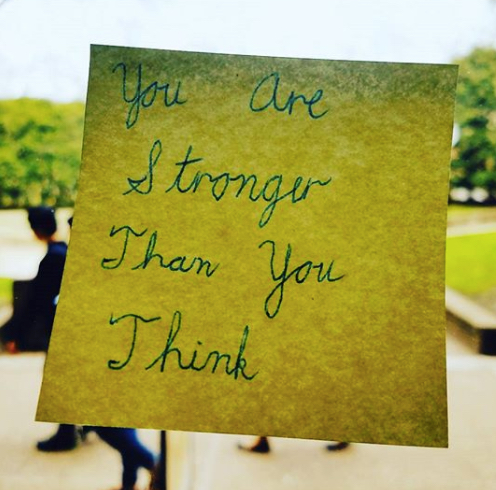 You Are
Stronger
Than You
Think